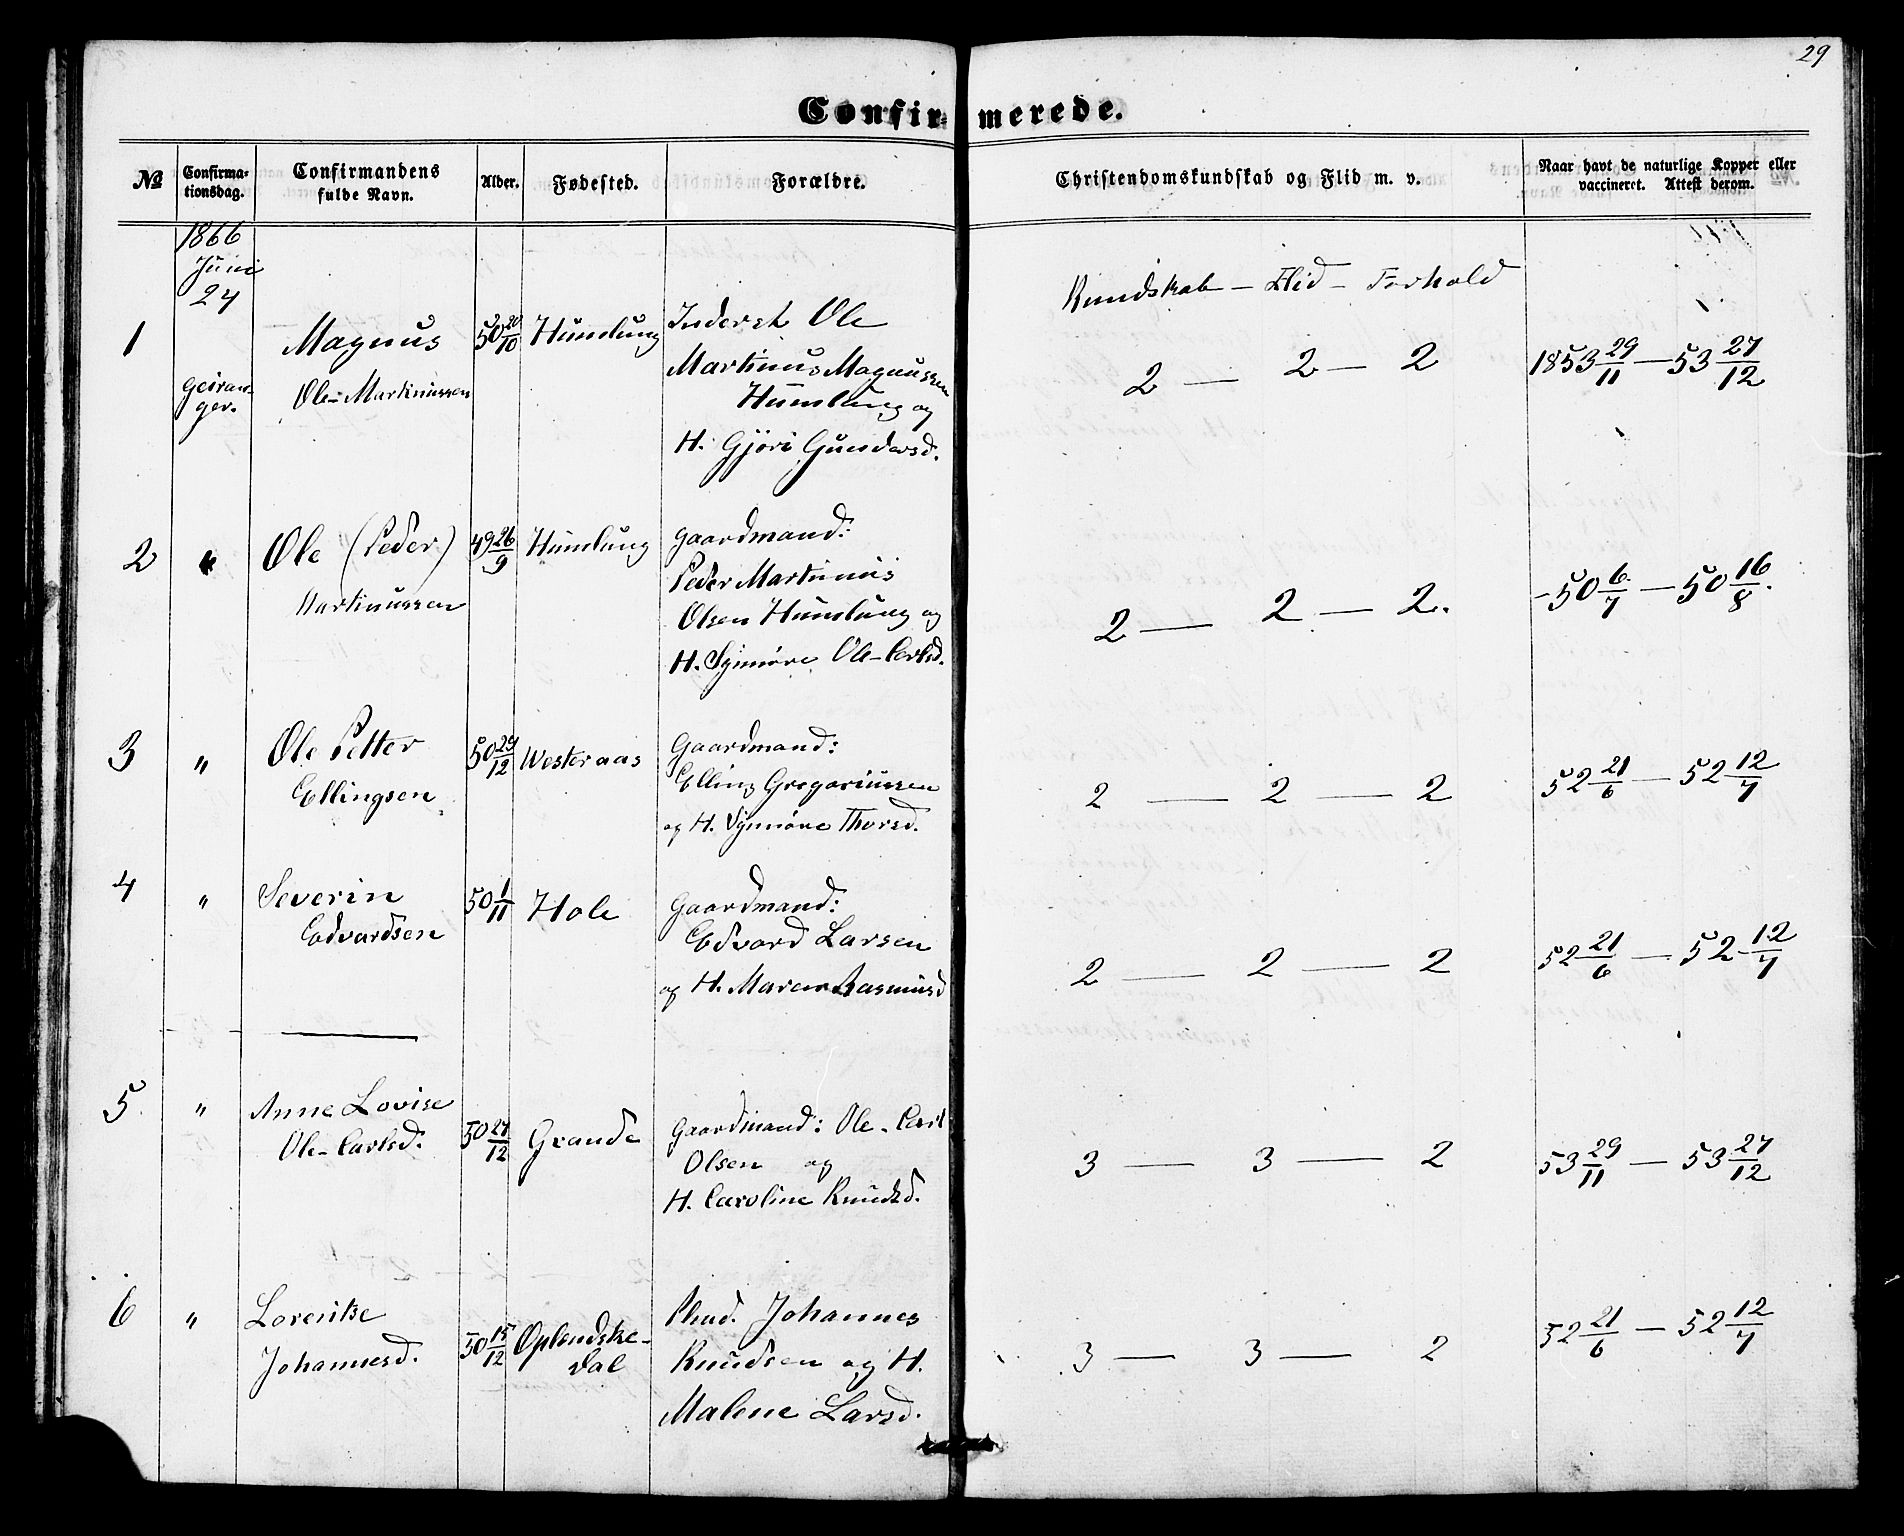 29
Confirmerede.
No Confirmationsdag. Confirmandens fulde Navn. Alder. Fødested. Forældre. Christendomskundskab og Flid m. v. Naar havt de naturlige Kopper eller vaccineret. Attest derom.
1866
Juni
24
Kundskab – Flid – Forhold
1 Magnus 50 20/10 Humlung Inderst Ole
Geiranger. Ole-Martinussen Martinus Magnussen 2 — 2 — 2 1853 29/11 — 53 27/12
Humlung og
H. Gjöri Gundersd.
2 " Ole (Peder) 49 26/9 Humlung Gaardmand:
Martinussen Peder Martinus 2 — 2 — 2. - 50 6/7 — 50 16/8.
Olsen Humlung og
H. Synnöve Ole-Carlsd.
3 " Ole Petter 50 29/12 Westeraas Gaardmand:
Ellingsen. Elling Gregoriussen 2 — 2 — 2 52 21/6 — 52 12/7
og H. Synnöve Thorsd.
4 " Severin 50 1/11 Hole Gaardmand:
Edvardsen Edvard Larsen 2 — 2 — 2 52 21/6 — 52 12/7
og H. Maren Rasmusd
5 " Anne Lovise
Ole-Carlsd. 50 27/12 Grande Gaardmand: Ole-Carl
Olsen og 3 — 3 — 2 53 29/11 — 53 27/12
H. Caroline Knudsd.
6 " Lorentse Plmd. Johannes
Johannesd. 50 15/12 Oplendskedal Knudsen og H. 3 — 3 — 2 52 21/6 — 52 12/7
Malene Larsd.